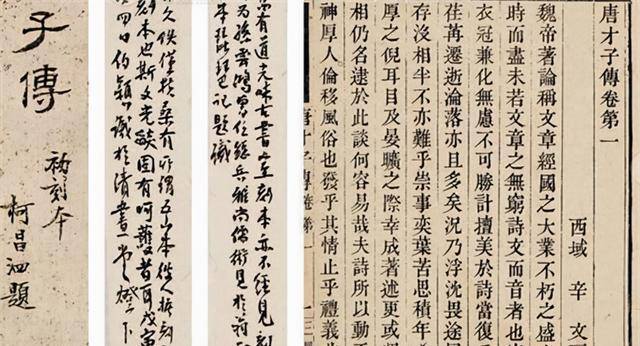 唐才子傳卷第一
西域 辛文
魏帝著論稱文章經國之大業不朽之盛
時而盡未若文章之無窮詩文而音者也
衣冠兼化無慮不可勝計擅美於詩當復
荏苒遷逝淪落亦且多矣況乃浮沈畏途
存沒相半不亦難乎崇事奕葉苦思積年
厚之倪耳目及晏曠之際幸成著述更或
相仍名逮於此談何容易哉夫詩所以動
神厚人倫移風俗也發乎其情止乎禮義
唐才子傳卷第一
有道光味古書室刻本亦不經見
為孫雲鴻總兵雅尚儒術見於
記題識
久佚僅有所謂五山本佚人據刻
刻本也斯文光燄固有呵護者耶戊寅
四日識於清畫堂燈下
子傳
初刻本
柯昌泗題